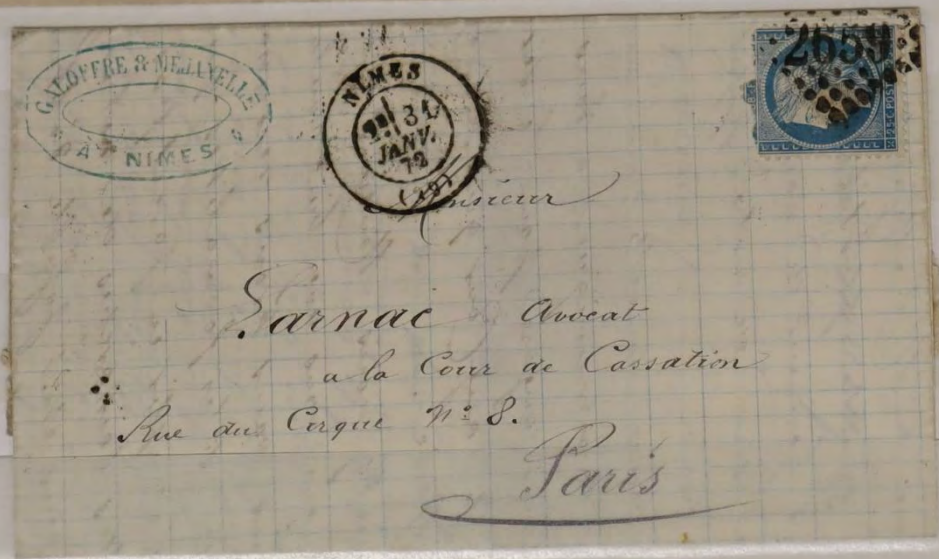 GALOFFRE & MEJANELLE
A NIMES
NIMES
31
JANV.
72
2659
25 C POSTES
Monsieur
Larnac Avocat
a la Cour de Cassation
Rue du Cirque Nº 8.
Paris